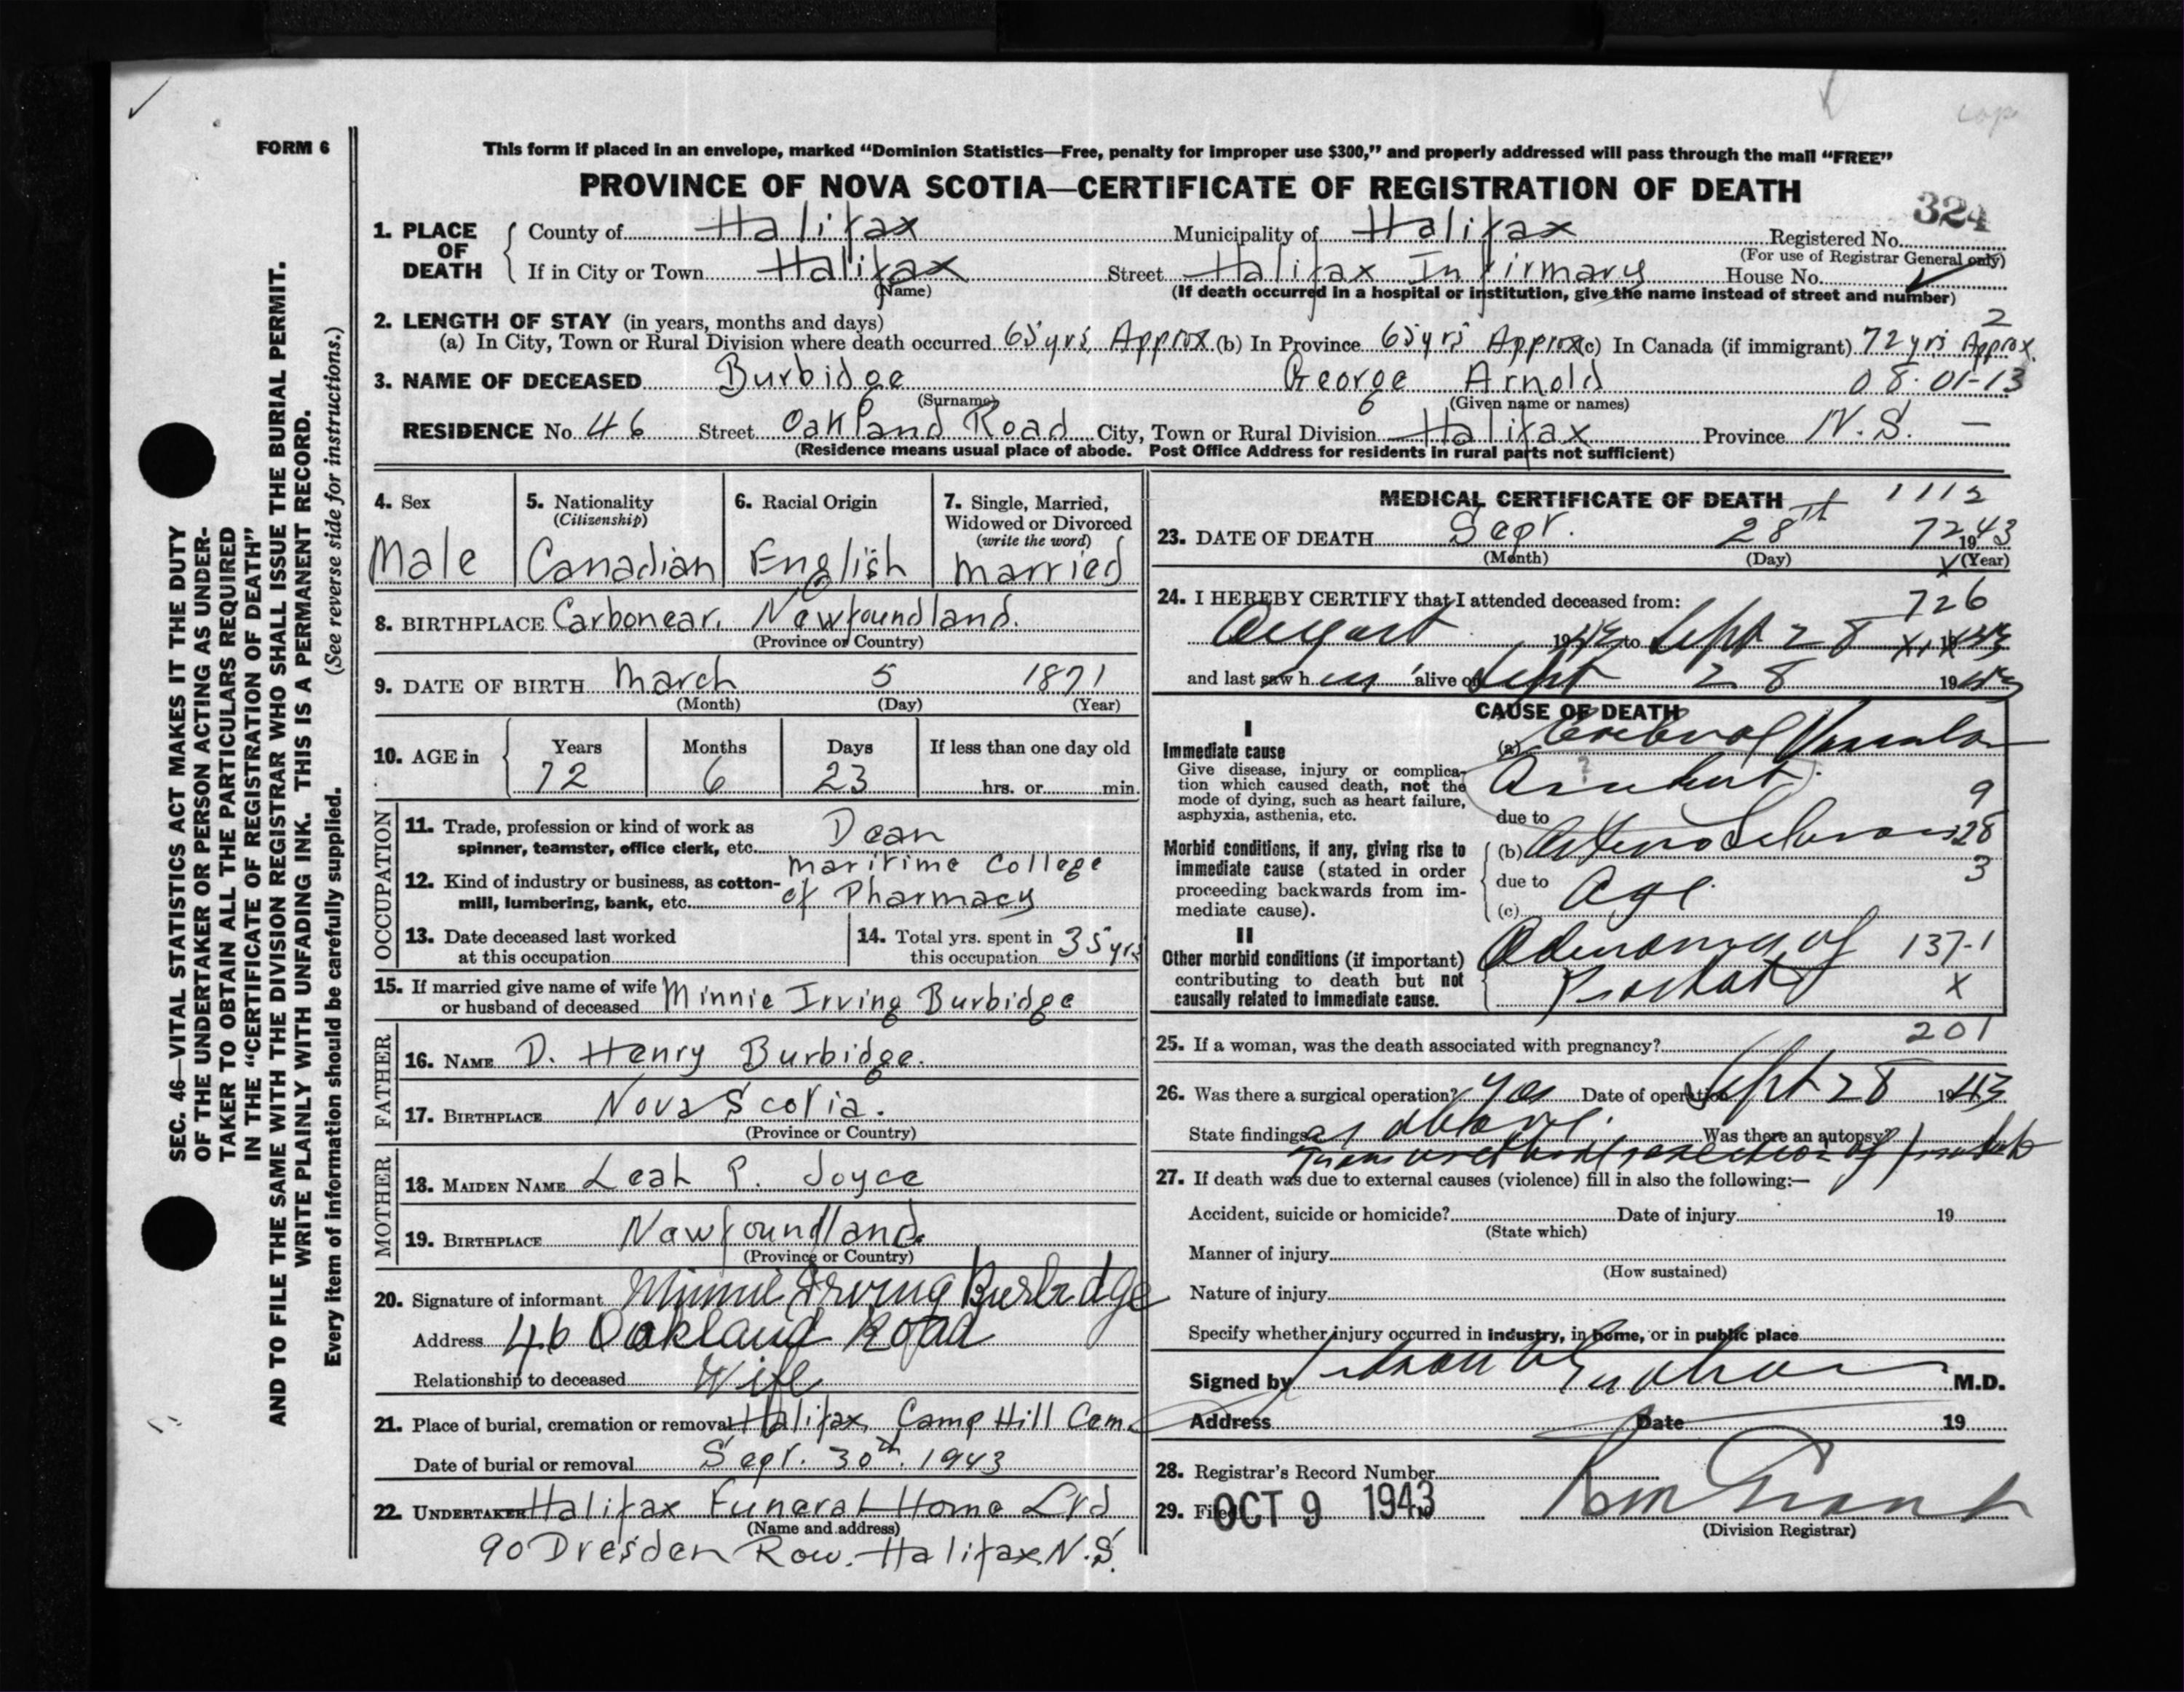 cop
FORM 6
This form if placed in an envelope, marked "Dominion Statistics—Free, penalty for improper use $300," and properly addressed will pass through the mail "FREE"
PROVINCE OF NOVA SCOTIA—CERTIFICATE OF REGISTRATION OF DEATH
324
1. PLACE OF DEATH County of Halifax Municipality of Halifax Registered No.
(For use of Registrar General only)
If in City or Town Halifax Street Halifax Infirmary House No.
(Name) (If death occurred in a hospital or institution, give the name instead of street and number)
2. LENGTH OF STAY (in years, months and days) 2
(a) In City, Town or Rural Division where death occurred 65 yrs Approx (b) In Province 65 yrs Approx (c) In Canada (if immigrant) 72 yrs Approx.
3. NAME OF DECEASED Burbidge George Arnold 08-01-13
(Surname) (Given name or names)
RESIDENCE No. 46 Street Oakland Road City, Town or Rural Division Halifax Province N.S. —
(Residence means usual place of abode. Post Office Address for residents in rural parts not sufficient)
4. Sex 5. Nationality (Citizenship) 6. Racial Origin 7. Single, Married, Widowed or Divorced (write the word)
Male Canadian English Married
8. BIRTHPLACE Carbonear, Newfoundland.
(Province or Country)
9. DATE OF BIRTH March 5 1871
(Month) (Day) (Year)
10. AGE in Years Months Days If less than one day old
72 6 23 hrs. or min.
OCCUPATION
11. Trade, profession or kind of work as spinner, teamster, office clerk, etc. Dean
12. Kind of industry or business, as cotton-mill, lumbering, bank, etc. Maritime College of Pharmacy
13. Date deceased last worked at this occupation
14. Total yrs. spent in this occupation 35 yrs
15. If married give name of wife or husband of deceased Minnie Irving Burbidge
FATHER
16. NAME D. Henry Burbidge.
17. BIRTHPLACE Nova Scotia.
(Province or Country)
MOTHER
18. MAIDEN NAME Leah P. Joyce
19. BIRTHPLACE Newfoundland.
(Province or Country)
20. Signature of informant Minnie Irving Burbidge
Address 46 Oakland Road
Relationship to deceased Wife
21. Place of burial, cremation or removal Halifax, Camp Hill Cem.
Date of burial or removal Sept. 30th. 1943
22. UNDERTAKER Halifax Funeral Home Ltd
(Name and address)
90 Dresden Row. Halifax N.S.
MEDICAL CERTIFICATE OF DEATH 1112
23. DATE OF DEATH Sept. 28th 72 1943
(Month) (Day) (Year)
24. I HEREBY CERTIFY that I attended deceased from: 726
August 1943 to Sept 28 1943
and last saw h im alive on Sept 28 1943
CAUSE OF DEATH
I
Immediate cause
Give disease, injury or complication which caused death, not the mode of dying, such as heart failure, asphyxia, asthenia, etc.
(a) Cerebral Vascular
Accident ?
9
due to
Morbid conditions, if any, giving rise to immediate cause (stated in order proceeding backwards from immediate cause).
(b) Arteriosclerosis 28
due to 3
(c) Age.
II
Other morbid conditions (if important) contributing to death but not causally related to immediate cause.
Adenoma of 137-1
Prostate X
201
25. If a woman, was the death associated with pregnancy?
26. Was there a surgical operation? Yes Date of operation Sept 28 1943
State findings as above. Was there an autopsy?
Trans urethral resection of prostate
27. If death was due to external causes (violence) fill in also the following:—
Accident, suicide or homicide? Date of injury 19
(State which)
Manner of injury
(How sustained)
Nature of injury
Specify whether injury occurred in industry, in home, or in public place
Signed by M.D.
Address Date 19
28. Registrar's Record Number
29. Filed OCT 9 1943 19
(Division Registrar)
SEC. 46—VITAL STATISTICS ACT MAKES IT THE DUTY
OF THE UNDERTAKER OR PERSON ACTING AS UNDER-
TAKER TO OBTAIN ALL THE PARTICULARS REQUIRED
IN THE "CERTIFICATE OF REGISTRATION OF DEATH"
AND TO FILE THE SAME WITH THE DIVISION REGISTRAR WHO SHALL ISSUE THE BURIAL PERMIT.
WRITE PLAINLY WITH UNFADING INK. THIS IS A PERMANENT RECORD.
Every item of information should be carefully supplied. (See reverse side for instructions.)